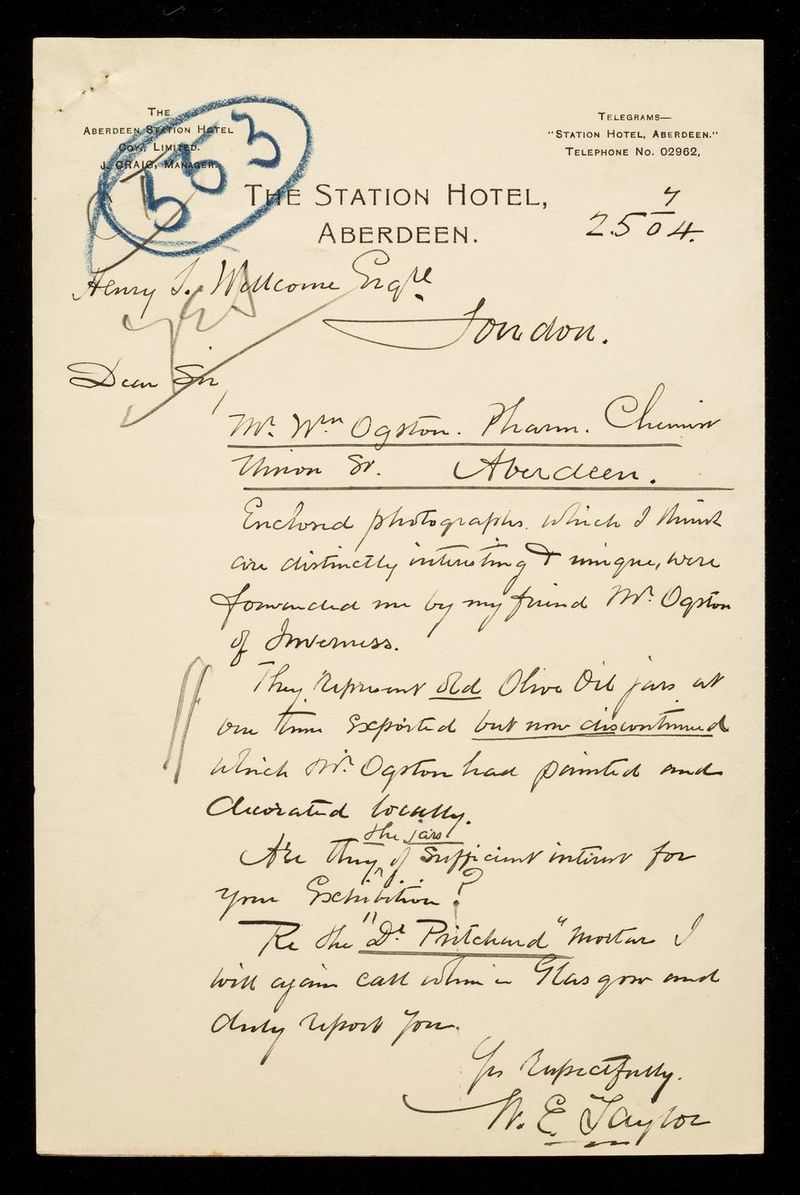 The
Aberdeen Station Hotel
Coy., Limited.
J. Craig, Manager.
553
Telegrams—
"Station Hotel, Aberdeen."
Telephone No. 02962,
The Station Hotel,
Aberdeen.
25 7/04.
Henry S. Wellcome Esqre
yes
London.
Dear Sir,
Mr. Wm Ogston. Pharm. Chemist
Union St. Aberdeen.
Enclosed photographs. which I think
are distinctly interesting & unique, were
forwarded me by my friend Mr. Ogston
of Inverness.
They represent old Olive Oil jars at
one time exported but now discontinued
which Mr. Ogston had painted and
decorated locally.
the jars
Are they ^ of sufficient interest for
your Exhibition?
Re the "Dr Pritchard" mortar I
will again call when in Glasgow and
duly report you.
Yrs respectfully.
W. E. Taylor